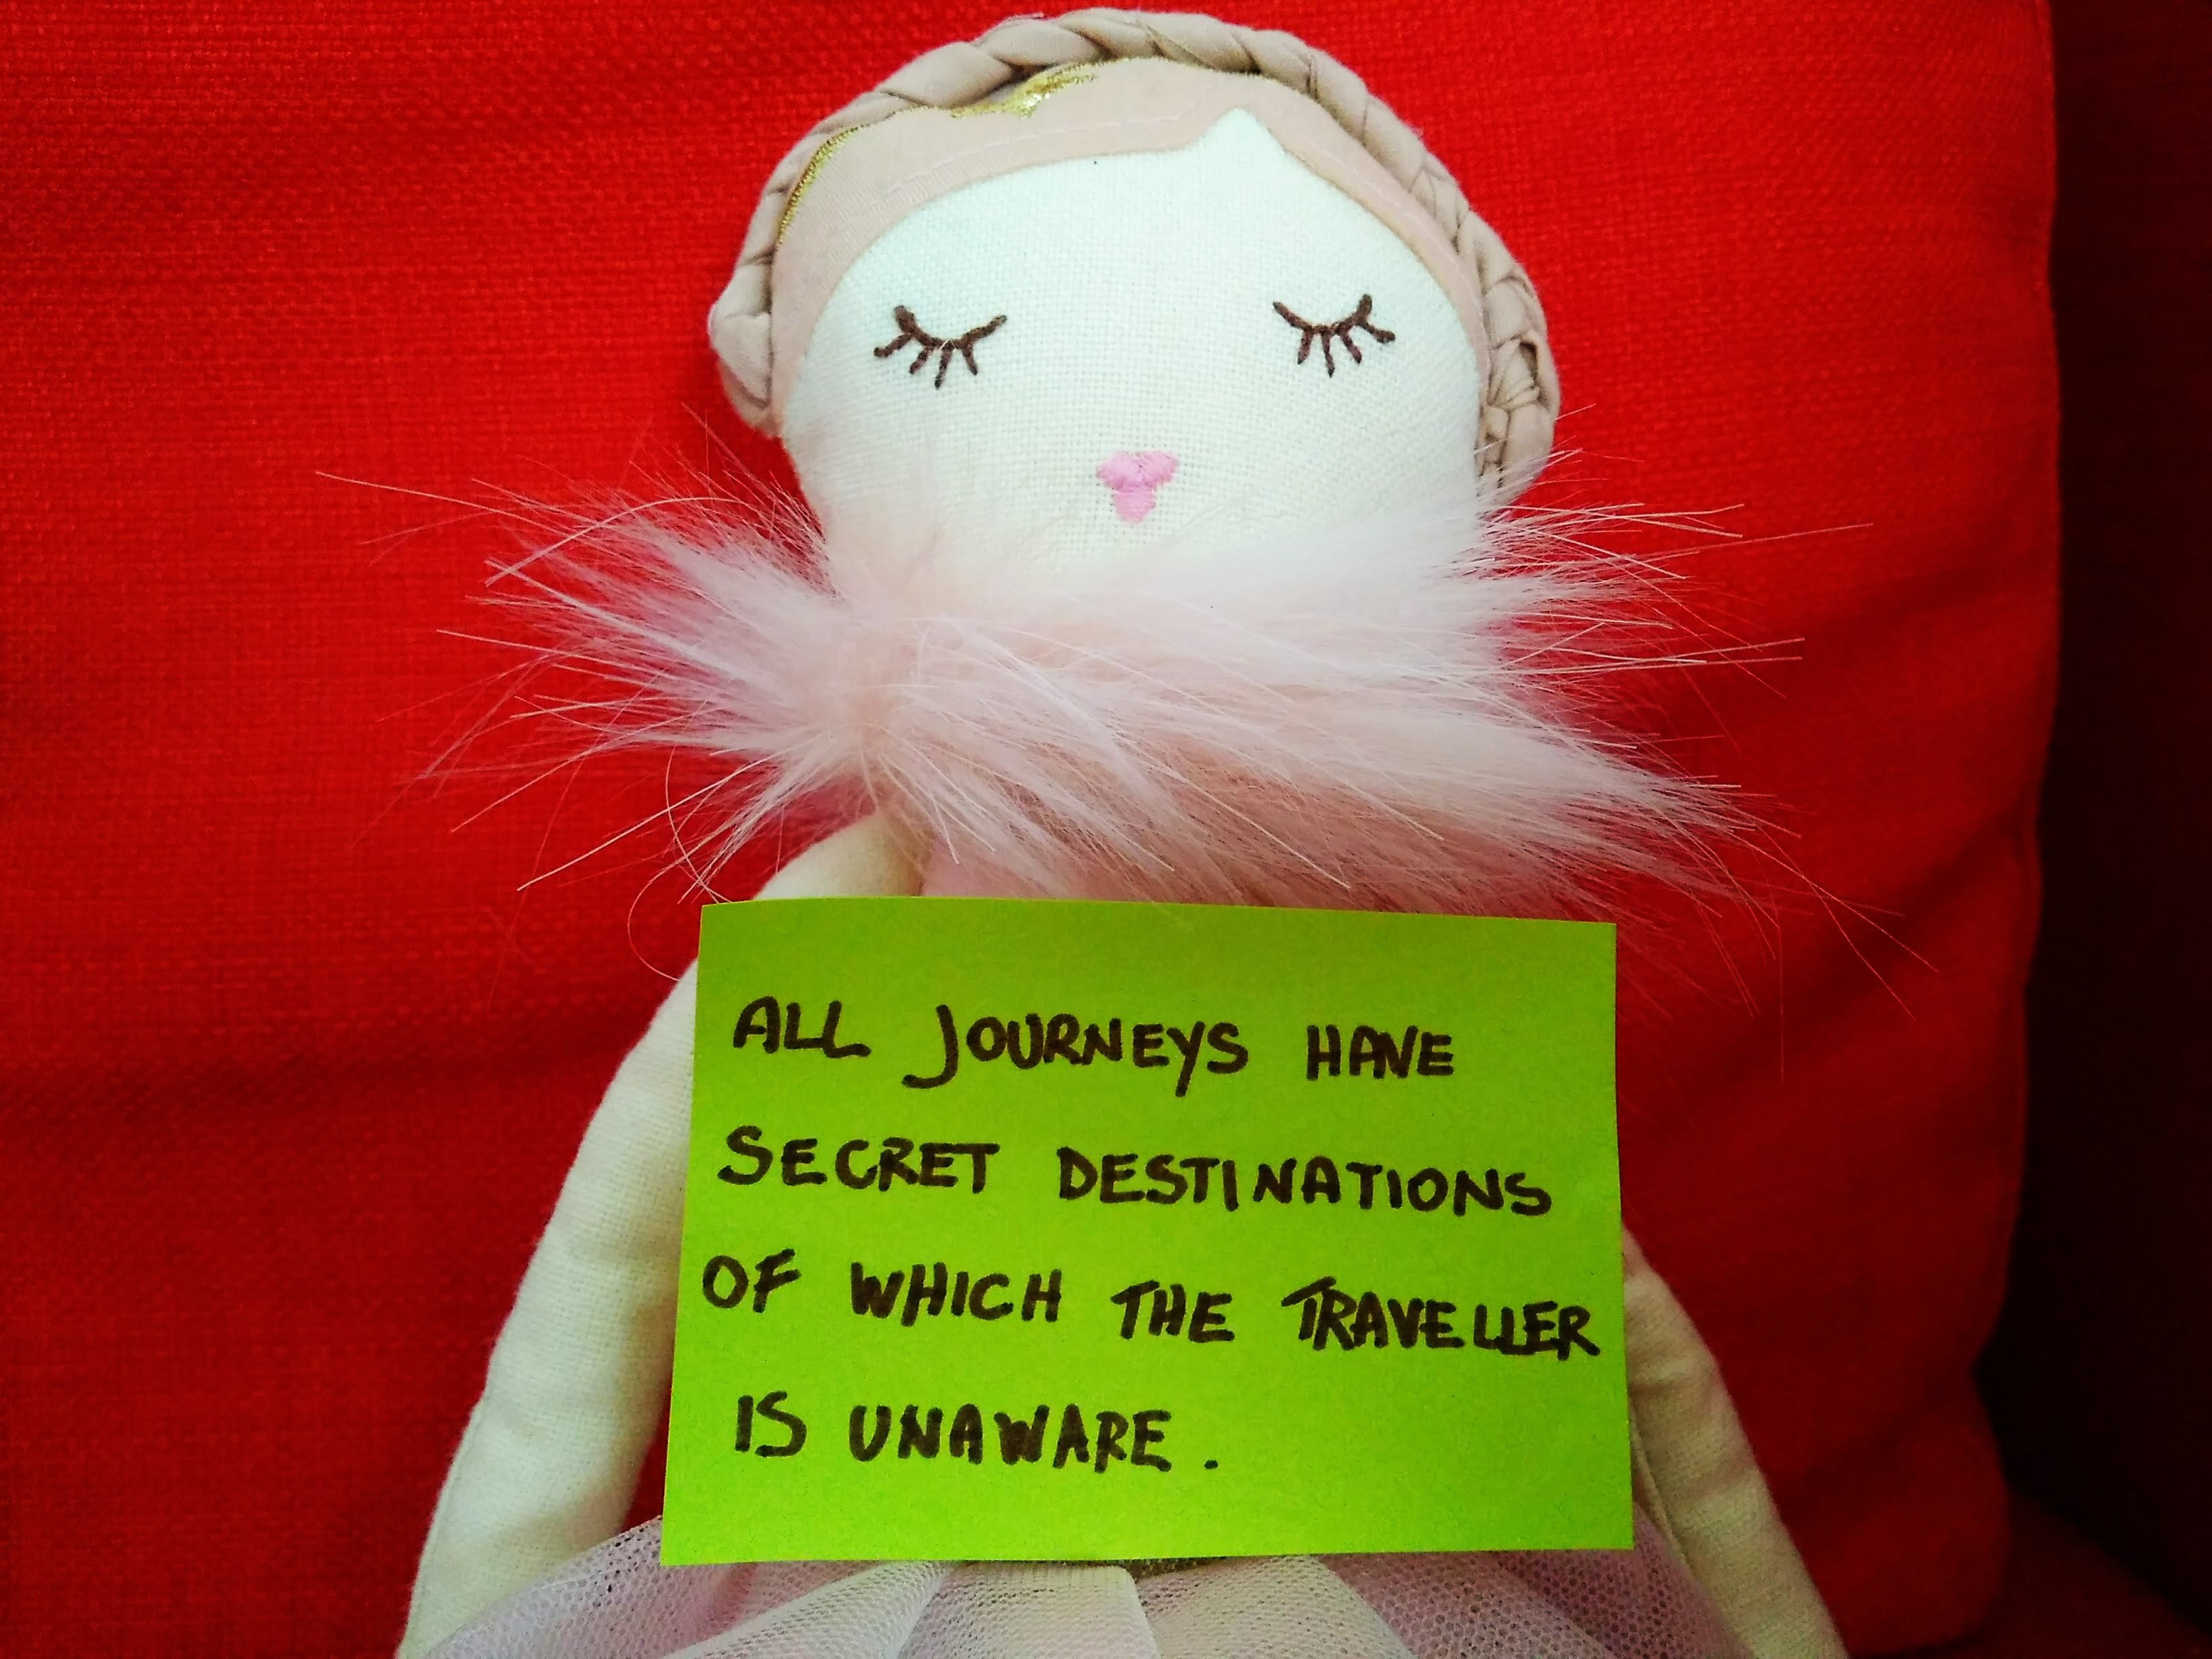 ALL JOURNEYS HAVE
SECRET DESTINATIONS
OF WHICH THE TRAVELLER
IS UNAWARE.